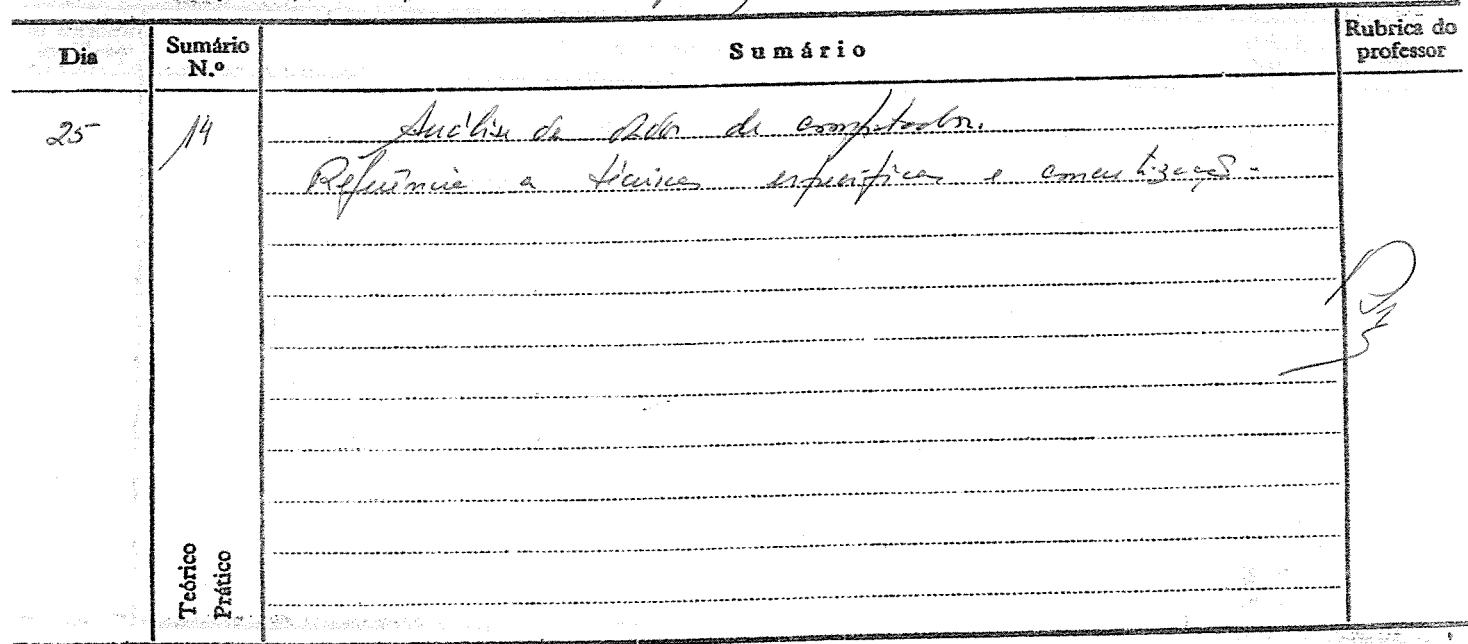 Dia
Sumário N.º
Sumário
Rubrica do professor
25
14
Análise de de computador.
Referência a técnicas específicas e
Teórico
Prático